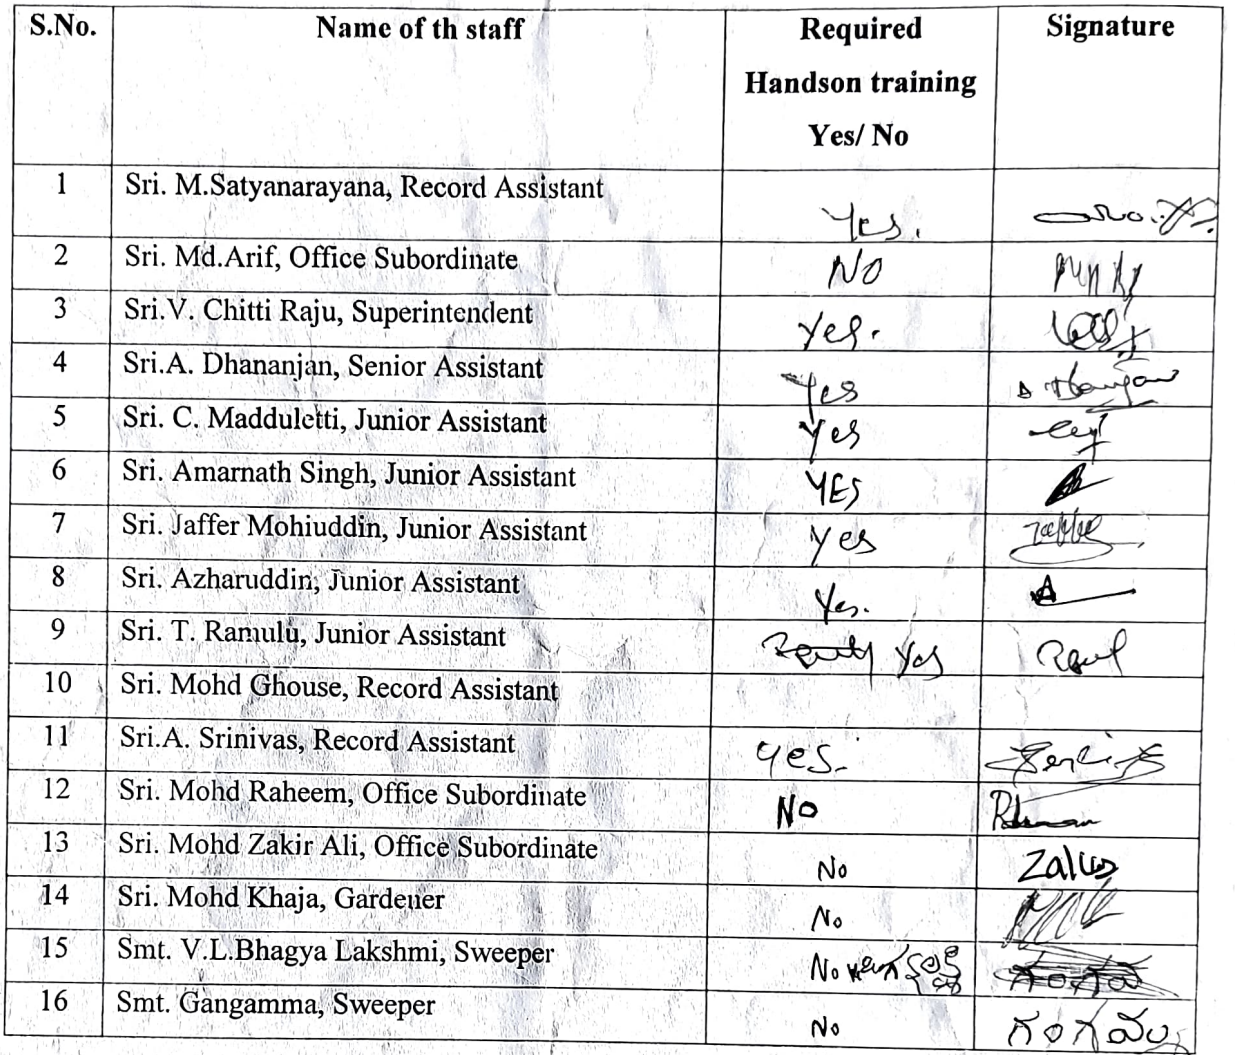 S.No. Name of th staff Required Signature
Handson training
Yes/ No
1 Sri. M.Satyanarayana, Record Assistant Yes.
2 Sri. Md.Arif, Office Subordinate NO
3 Sri.V. Chitti Raju, Superintendent Yes.
4 Sri.A. Dhananjan, Senior Assistant Yes
5 Sri. C. Madduletti, Junior Assistant Yes
6 Sri. Amarnath Singh, Junior Assistant YES
7 Sri. Jaffer Mohiuddin, Junior Assistant Yes
8 Sri. Azharuddin, Junior Assistant Yes.
9 Sri. T. Ramulu, Junior Assistant Yes
10 Sri. Mohd Ghouse, Record Assistant
11 Sri.A. Srinivas, Record Assistant yes.
12 Sri. Mohd Raheem, Office Subordinate No
13 Sri. Mohd Zakir Ali, Office Subordinate No
14 Sri. Mohd Khaja, Gardener No
15 Smt. V.L.Bhagya Lakshmi, Sweeper No
16 Smt. Gangamma, Sweeper No